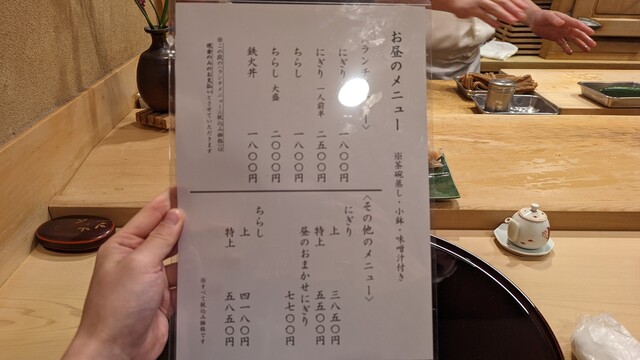 お昼のメニュー
※茶碗蒸し・小鉢・味噌汁付き
〈ランチメニュー〉
にぎり 一八〇〇円
にぎり 一人前半 二五〇〇円
ちらし 一八〇〇円
ちらし 大盛 二〇〇〇円
鉄火丼 一八〇〇円
〈その他のメニュー〉
にぎり
上 三八五〇円
特上 五五〇〇円
昼のおまかせにぎり
七七〇〇円
ちらし
上 四一八〇円
特上 五八五〇円
※すべて税込み価格です